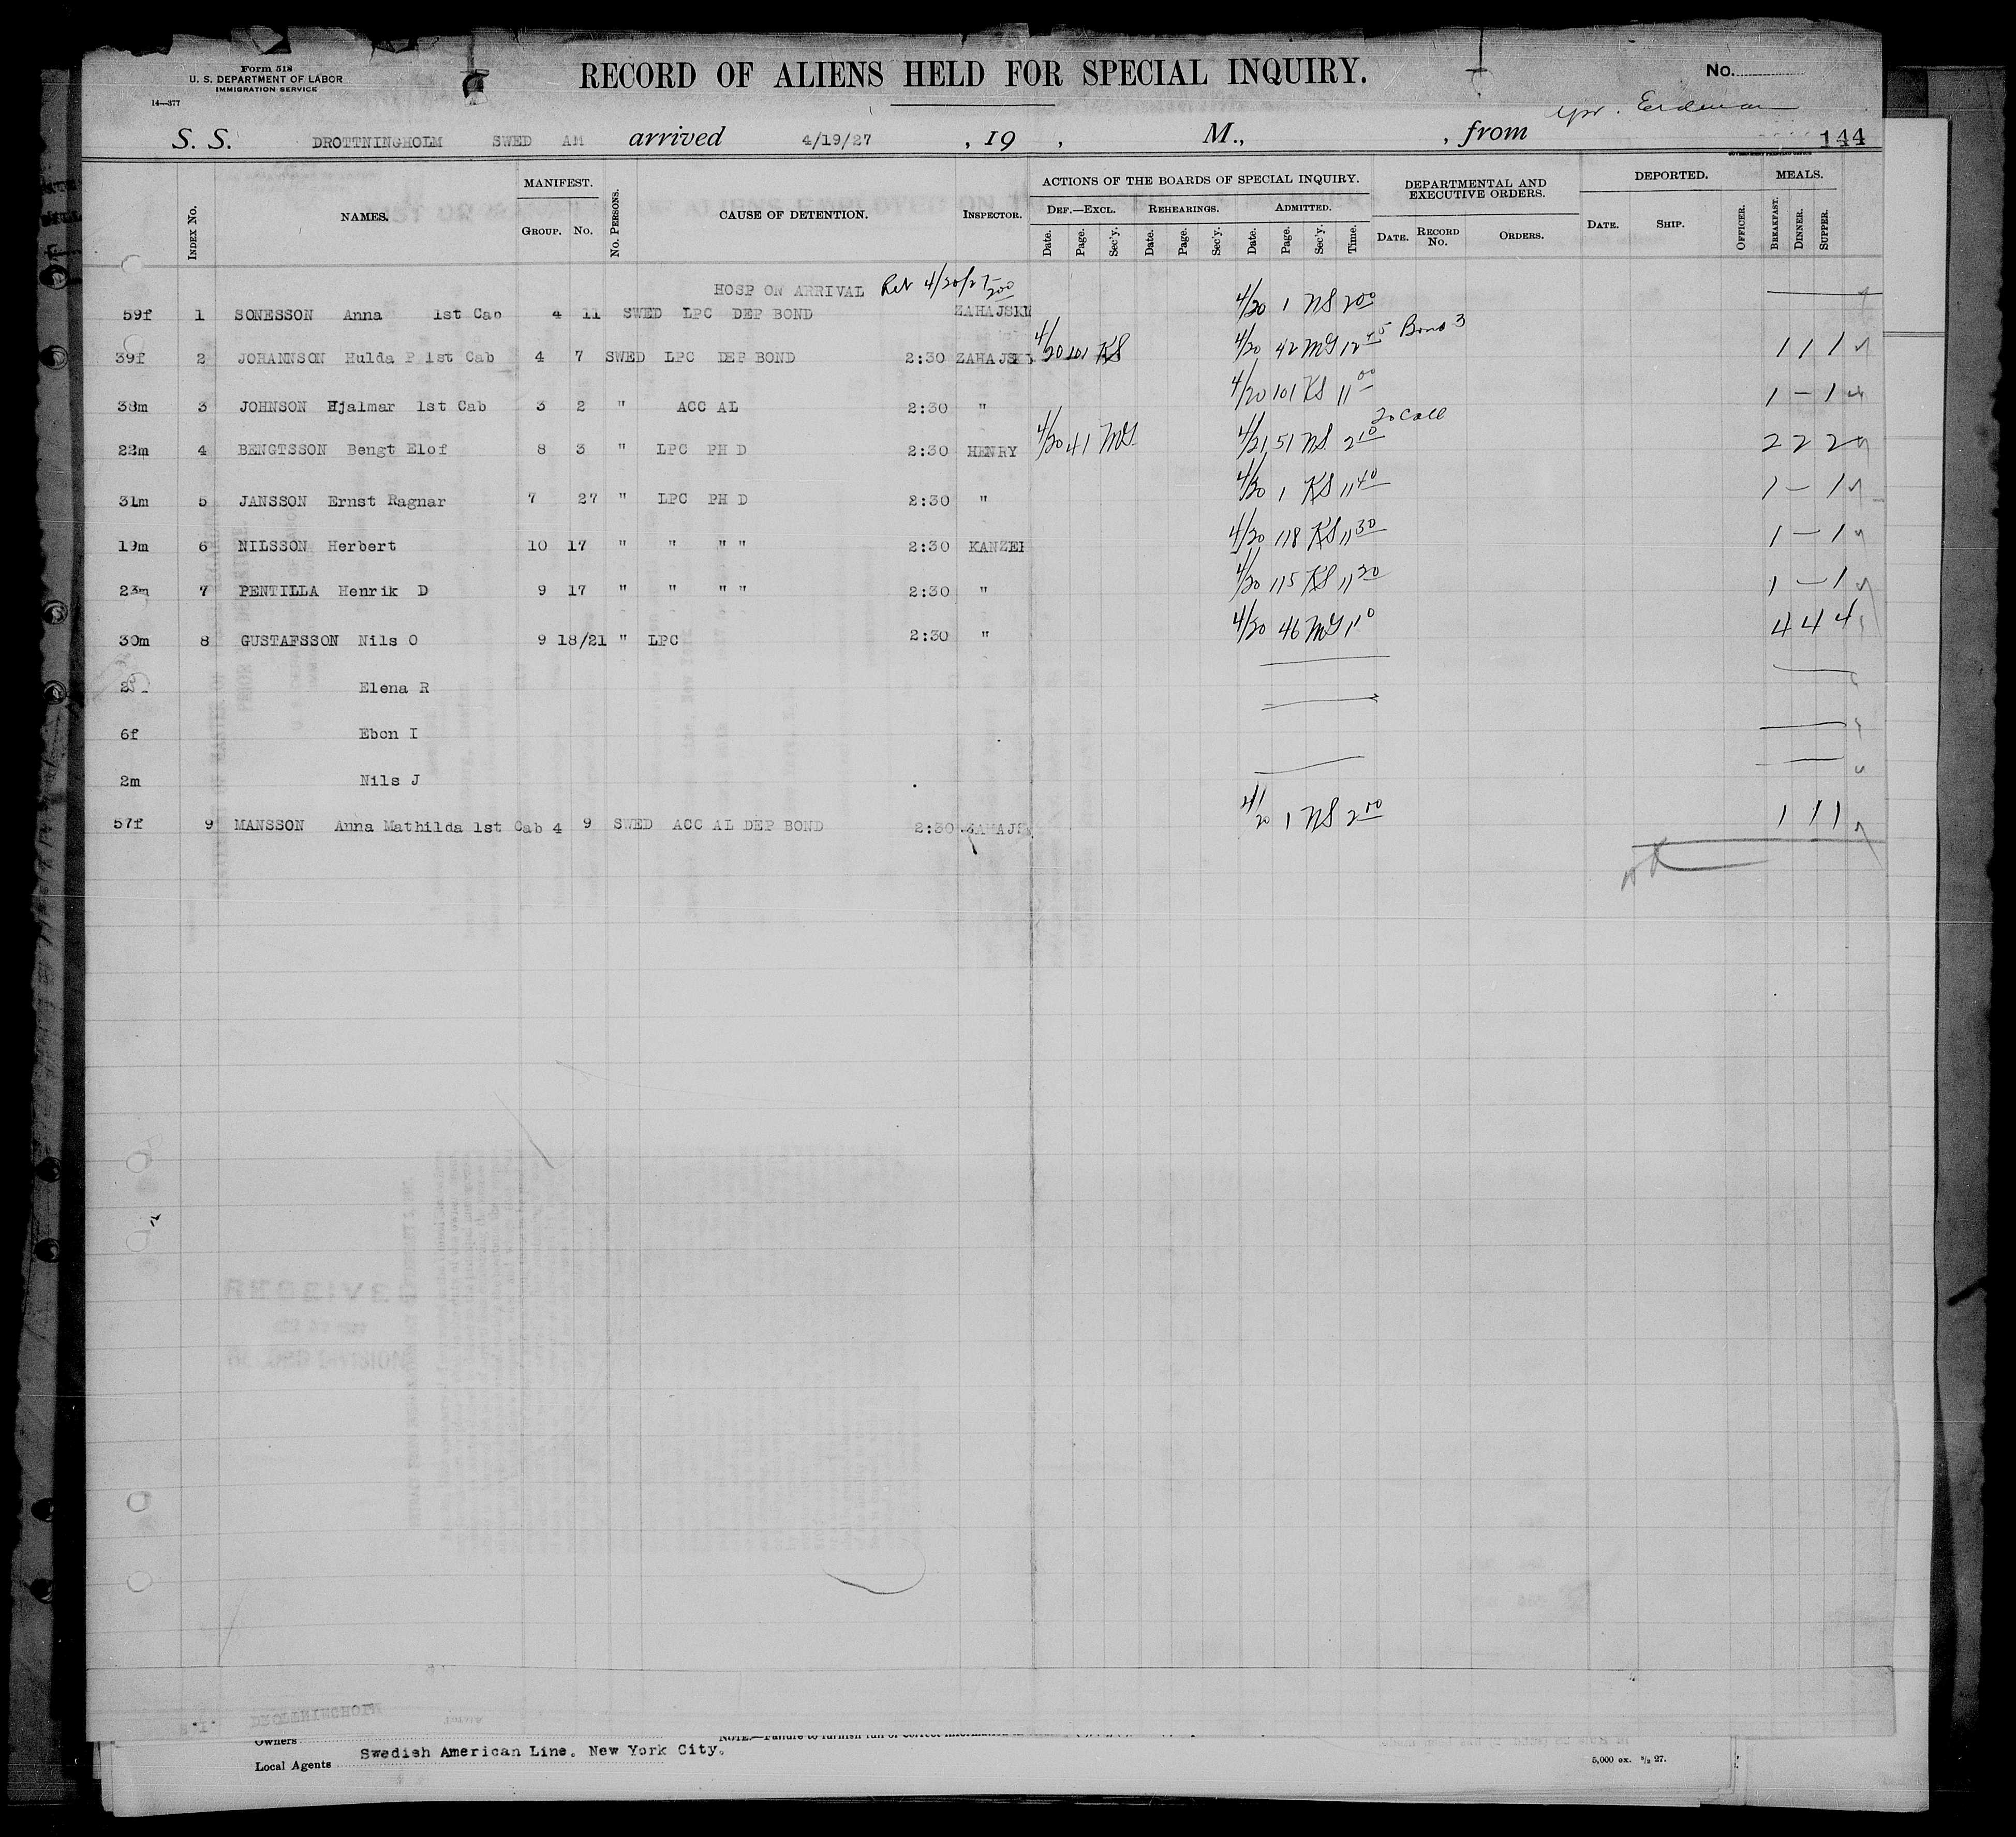 Form 518
U. S. DEPARTMENT OF LABOR
IMMIGRATION SERVICE
14—377
RECORD OF ALIENS HELD FOR SPECIAL INQUIRY.
No.
S. S. DROTTNINGHOLM SWED AM arrived 4/19/27 , 19 , M., , from
144
INDEX No. NAMES. MANIFEST. GROUP. No. No. PERSONS. CAUSE OF DETENTION. INSPECTOR. ACTIONS OF THE BOARDS OF SPECIAL INQUIRY. DEF.—EXCL. Date. Page. Sec'y. REHEARINGS. Date. Page. Sec'y. ADMITTED. Date. Page. Sec'y. Time. DEPARTMENTAL AND EXECUTIVE ORDERS. DATE. RECORD No. ORDERS. DEPORTED. DATE. SHIP. OFFICER. MEALS. BREAKFAST. DINNER. SUPPER.
HOSP ON ARRIVAL Rel 4/20/27 200
59f 1 SONESSON Anna 1st Cab 4 11 SWED LPC DEP BOND ZAHAJSKI 4/20 1 NS 200
39f 2 JOHANNSON Hulda P 1st Cab 4 7 SWED LPC DEP BOND 2:30 ZAHAJSKI 4/20 101 KS 4/20 42 MG 12 45 Bond 3 1 1 1
38m 3 JOHNSON Hjalmar 1st Cab 3 2 " ACC AL 2:30 " 4/20 101 KS 11 00 1 – 1
22m 4 BENGTSSON Bengt Elof 8 3 " LPC PH D 2:30 HENRY 4/20 41 MG 4/21 51 NS 2 10 To Call 2 2 2
31m 5 JANSSON Ernst Ragnar 7 27 " LPC PH D 2:30 " 4/20 1 KS 11 40 1 – 1
19m 6 NILSSON Herbert 10 17 " " " " 2:30 KANZER 4/20 118 KS 11 30 1 – 1
23m 7 PENTILLA Henrik D 9 17 " " " " 2:30 " 4/20 115 KS 11 20 1 – 1
30m 8 GUSTAFSSON Nils O 9 18/21 " LPC 2:30 " 4/20 46 MG 1 10 4 4 4
Elena R
6f Ebon I
2m Nils J
57f 9 MANSSON Anna Mathilda 1st Cab 4 9 SWED ACC AL DEP BOND 2:30 ZAHAJSKI 4/20 1 NS 2 00 1 1 1
Owners
Local Agents Swedish American Line. New York City.
5,000 ex. 3/2 27.